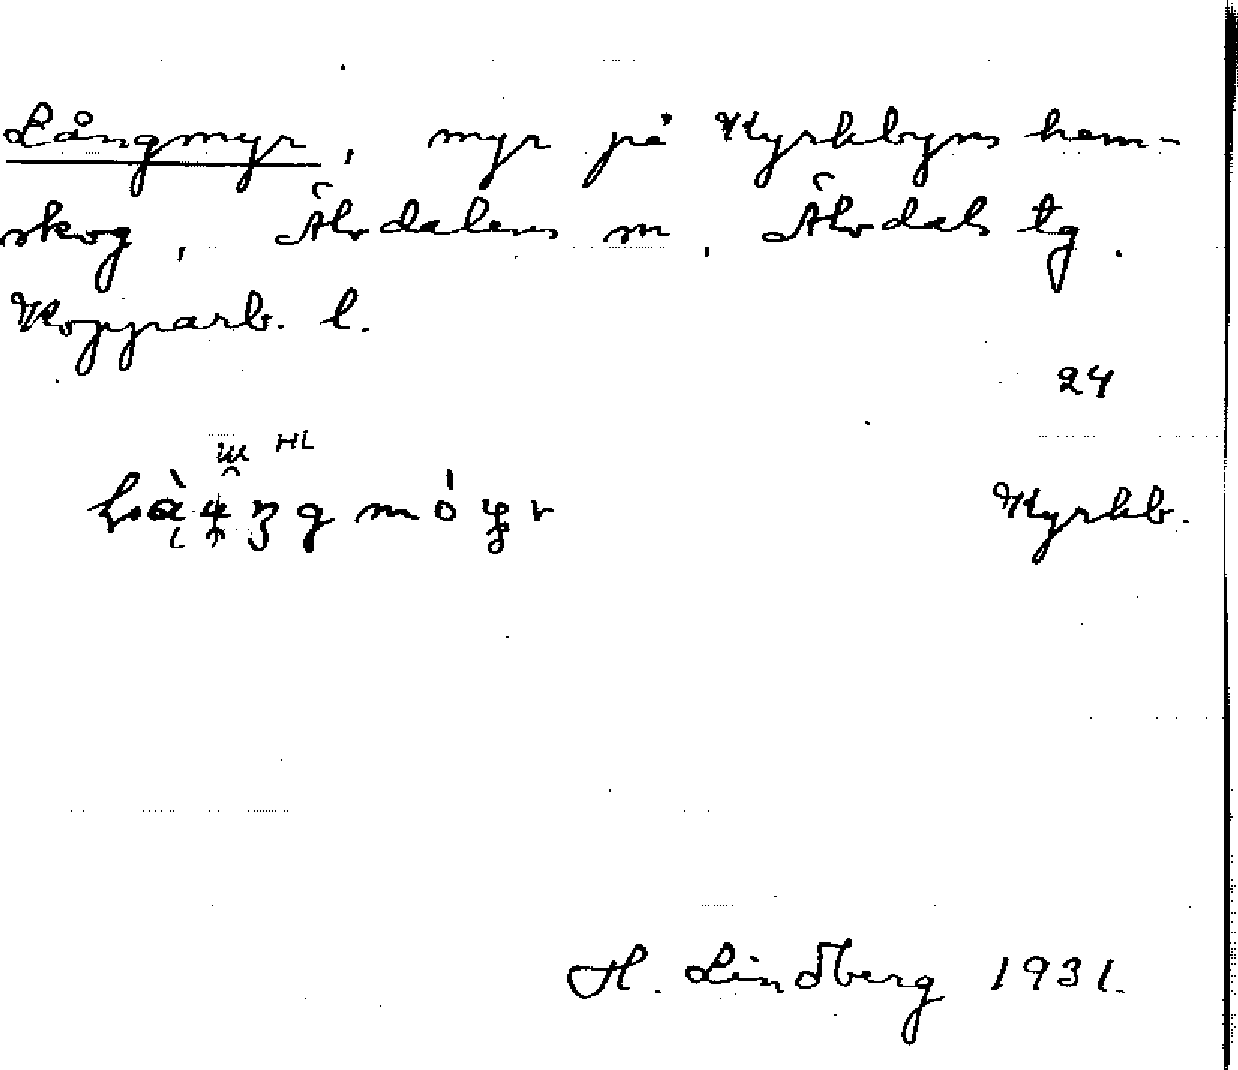 Långmyr, myr på Kyrkbyns hem-
skog, Älvdalens sn, Älvdals tg.
Kopparb. l.
24
HL
Kyrkb.
H. Lindberg 1931.